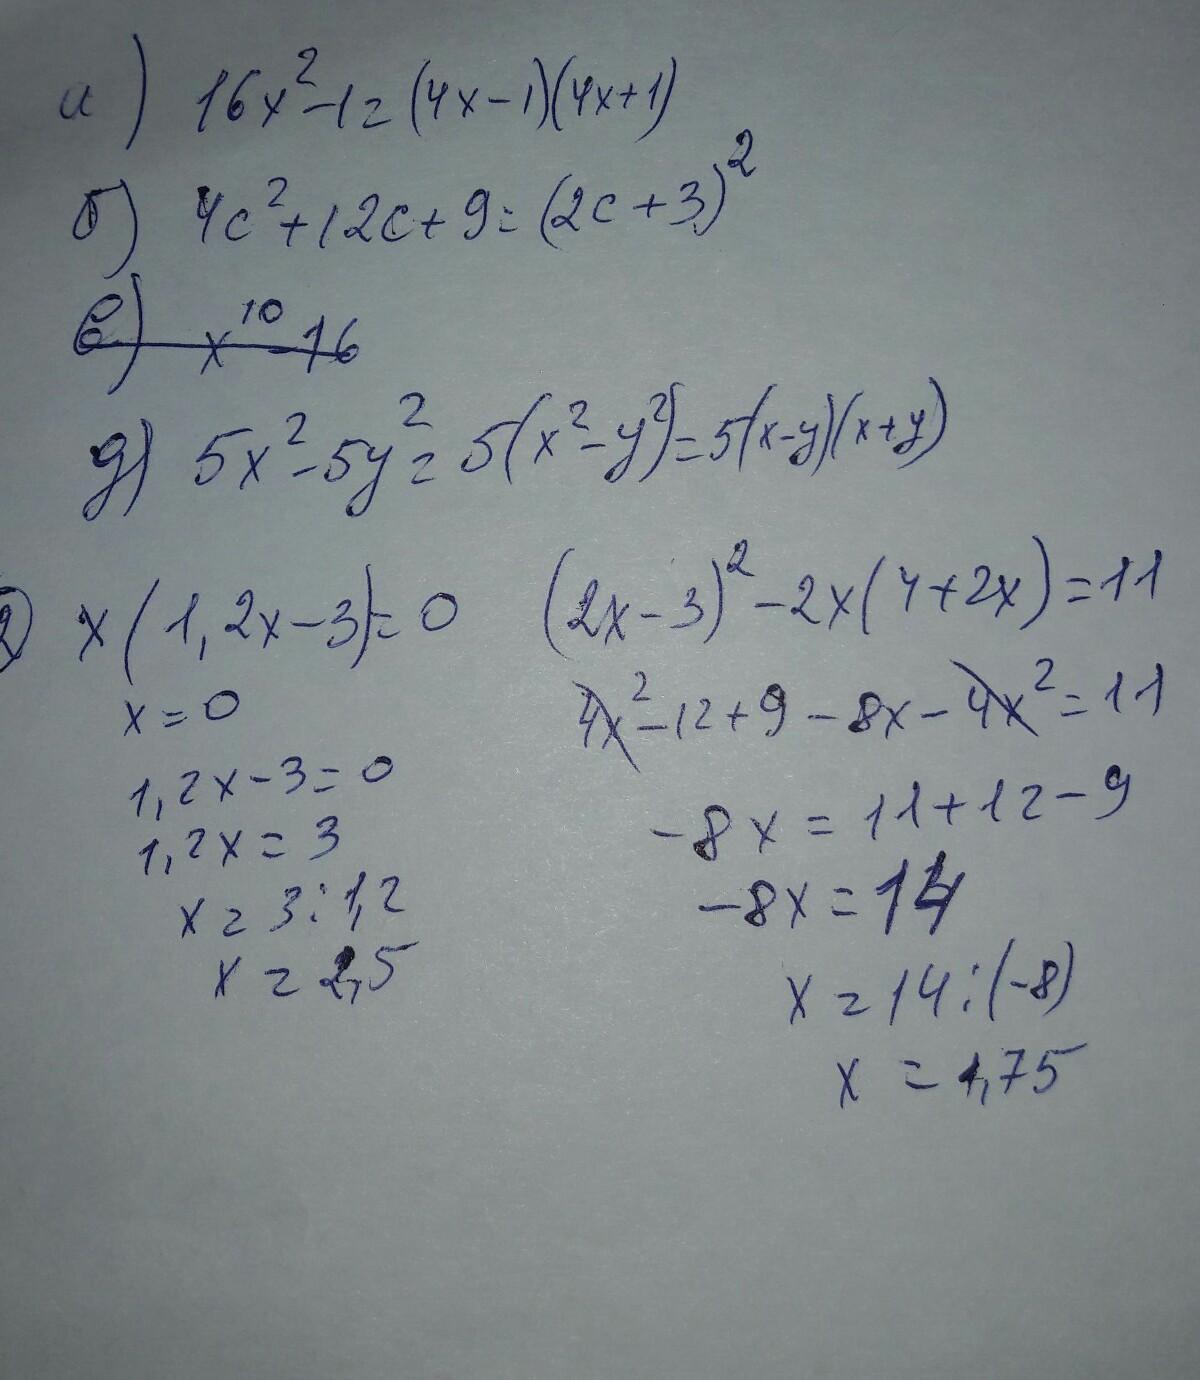 а) 16x²-1=(4x-1)(4x+1)
б) 4c²+12c+9=(2c+3)²
в) x¹⁰-16
д) 5x²-5y²=5(x²-y²)=5(x-y)(x+y)
2) x(1,2x-3)=0
x=0
1,2x-3=0
1,2x=3
x=3:1,2
x=2,5
(2x-3)²-2x(4+2x)=11
4x²-12+9-8x-4x²=11
-8x=11+12-9
-8x=14
x=14:(-8)
x=1,75